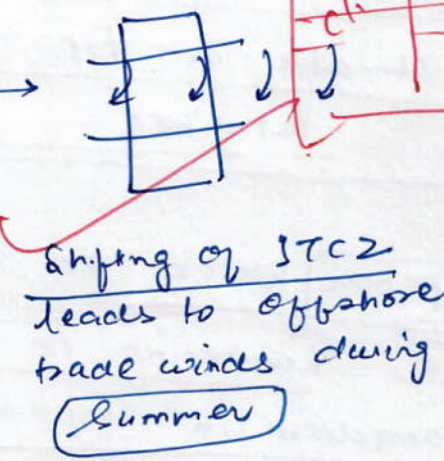 Shifting of ITCZ
leads to offshore
trade winds during
Summer